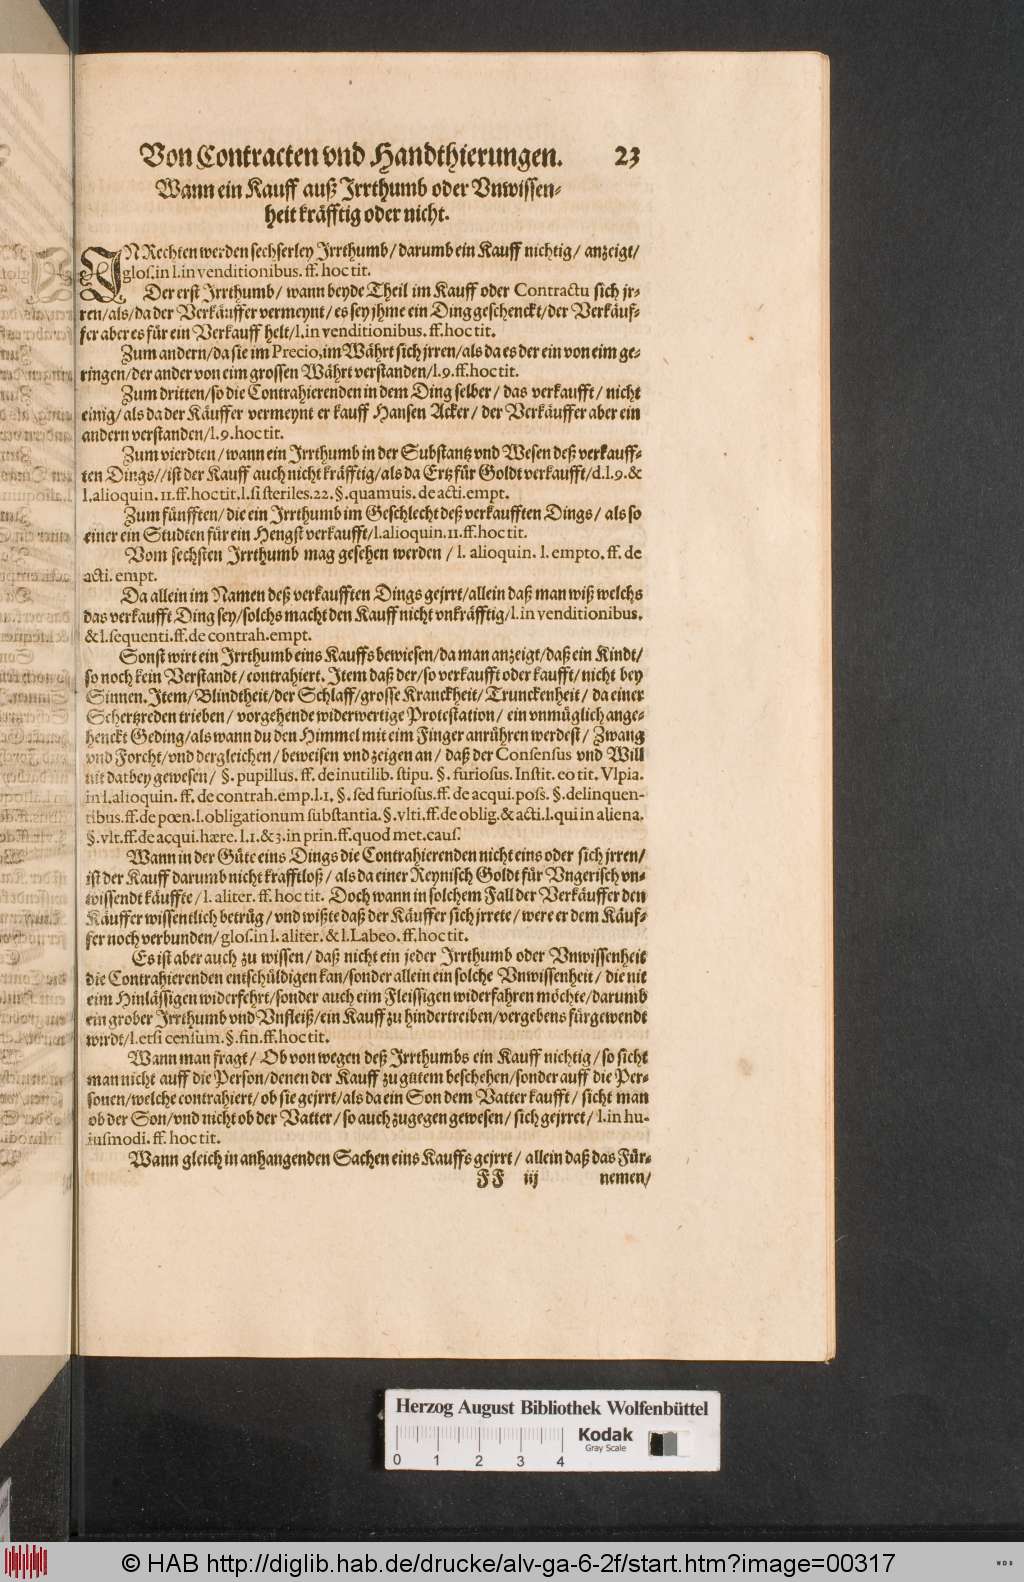 Von Contracten vnd Handthierungen. 23
Wann ein Kauff auß Irrthumb oder Vnwissen-
heit kräfftig oder nicht.
IN Rechten werden sechserley Irrthumb/ darumb ein Kauff nichtig/ anzeigt/
glos. in l. in venditionibus. ff. hoc tit.
Der erst Irrthumb/ wann beyde Theil im Kauff oder Contractu sich jr-
ren/als/da der Verkäuffer vermeynt/ es sey jhme ein Ding geschenckt/der Verkäuf-
fer aber es für ein Verkauff helt/l. in venditionibus. ff. hoc tit.
Zum andern/da sie im Precio, im Währt sich jrren/als da es der ein von eim ge-
ringen/der ander von eim grossen Währt verstanden/l.9. ff. hoc tit.
Zum dritten/so die Contrahierenden in dem Ding selber/ das verkaufft/ nicht
einig/ als da der Käuffer vermeynt er kauff Hansen Acker/ der Verkäuffer aber ein
andern verstanden/l.9. hoc tit.
Zum vierdten/ wann ein Irrthumb in der Substantz vnd Wesen deß verkauff-
ten Dings//ist der Kauff auch nicht kräfftig/als da Ertz für Goldt verkaufft/d.l.9.&
l. alioquin. 11. ff. hoc tit. l. si steriles. 22. §. quamuis. de acti. empt.
Zum fünfften/ die ein Irrthumb im Geschlecht deß verkaufften Dings/ als so
einer ein Studten für ein Hengst verkaufft/l. alioquin. 11. ff. hoc tit.
Vom sechsten Irrthumb mag gesehen werden/ l. alioquin. l. empto. ff. de
acti. empt.
Da allein im Namen deß verkaufften Dings gejrrt/allein daß man wiß welchs
das verkaufft Ding sey/solchs macht den Kauff nicht vnkräfftig/l. in venditionibus.
& l. sequenti. ff. de contrah. empt.
Sonst wirt ein Irrthumb eins Kauffs bewiesen/da man anzeigt/daß ein Kindt/
so noch kein Verstandt/ contrahiert. Item daß der/so verkaufft oder kaufft/ nicht bey
Sinnen. Item/ Blindtheit/der Schlaff/grosse Kranckheit/ Trunckenheit/ da einer
Schertzreden trieben/ vorgehende widerwertige Protestation/ ein vnmüglich ange-
henckt Geding/als wann du den Himmel mit eim Finger anrühren werdest/ Zwang
vnd Forcht/vnd dergleichen/ beweisen vnd zeigen an/ daß der Consensus vnd Will
nit darbey gewesen/ §. pupillus. ff. de inutilib. stipu. §. furiosus. Instit. eo tit. Vlpia.
in l. alioquin. ff. de contrah. emp. l.1. §. sed furiosus. ff. de acqui. poss. §. delinquen-
tibus. ff. de pœn. l. obligationum substantia. §. vlti. ff. de oblig. & acti. l. qui in aliena.
§. vlt. ff. de acqui. hære. l.1. & 3. in prin. ff. quod met. caus.
Wann in der Güte eins Dings die Contrahierenden nicht eins oder sich jrren/
ist der Kauff darumb nicht krafftloß/ als da einer Reynisch Goldt für Vngerisch vn-
wissendt käuffte/ l. aliter. ff. hoc tit. Doch wann in solchem Fall der Verkäuffer den
Käuffer wissentlich betrüg/ vnd wißte daß der Käuffer sich jrrete/ were er dem Käuf-
fer noch verbunden/ glos. in l. aliter. & l. Labeo. ff. hoc tit.
Es ist aber auch zu wissen/ daß nicht ein jeder Irrthumb oder Vnwissenheit
die Contrahierenden entschüldigen kan/sonder allein ein solche Vnwissenheit/ die nit
eim Hinlässigen widerfehrt/sonder auch eim Fleissigen widerfahren möchte/darumb
ein grober Irrthumb vnd Vnfleiß/ein Kauff zu hindertreiben/vergebens fürgewendt
wirdt/l. etsi censum. §. fin. ff. hoc tit.
Wann man fragt/ Ob von wegen deß Irrthumbs ein Kauff nichtig/ so sicht
man nicht auff die Person/denen der Kauff zu gutem beschehen/sonder auff die Per-
sonen/welche contrahiert/ ob sie gejrrt/als da ein Son dem Vatter kaufft/ sicht man
ob der Son/vnd nicht ob der Vatter/ so auch zugegen gewesen/ sich gejrret/ l. in hu-
iusmodi. ff. hoc tit.
Wann gleich in anhangenden Sachen eins Kauffs gejrrt/ allein daß das Für-
FF iij nemen/
Herzog August Bibliothek Wolfenbüttel
Kodak
Gray Scale
0 1 2 3 4
© HAB http://diglib.hab.de/drucke/alv-ga-6-2f/start.htm?image=00317
WDB